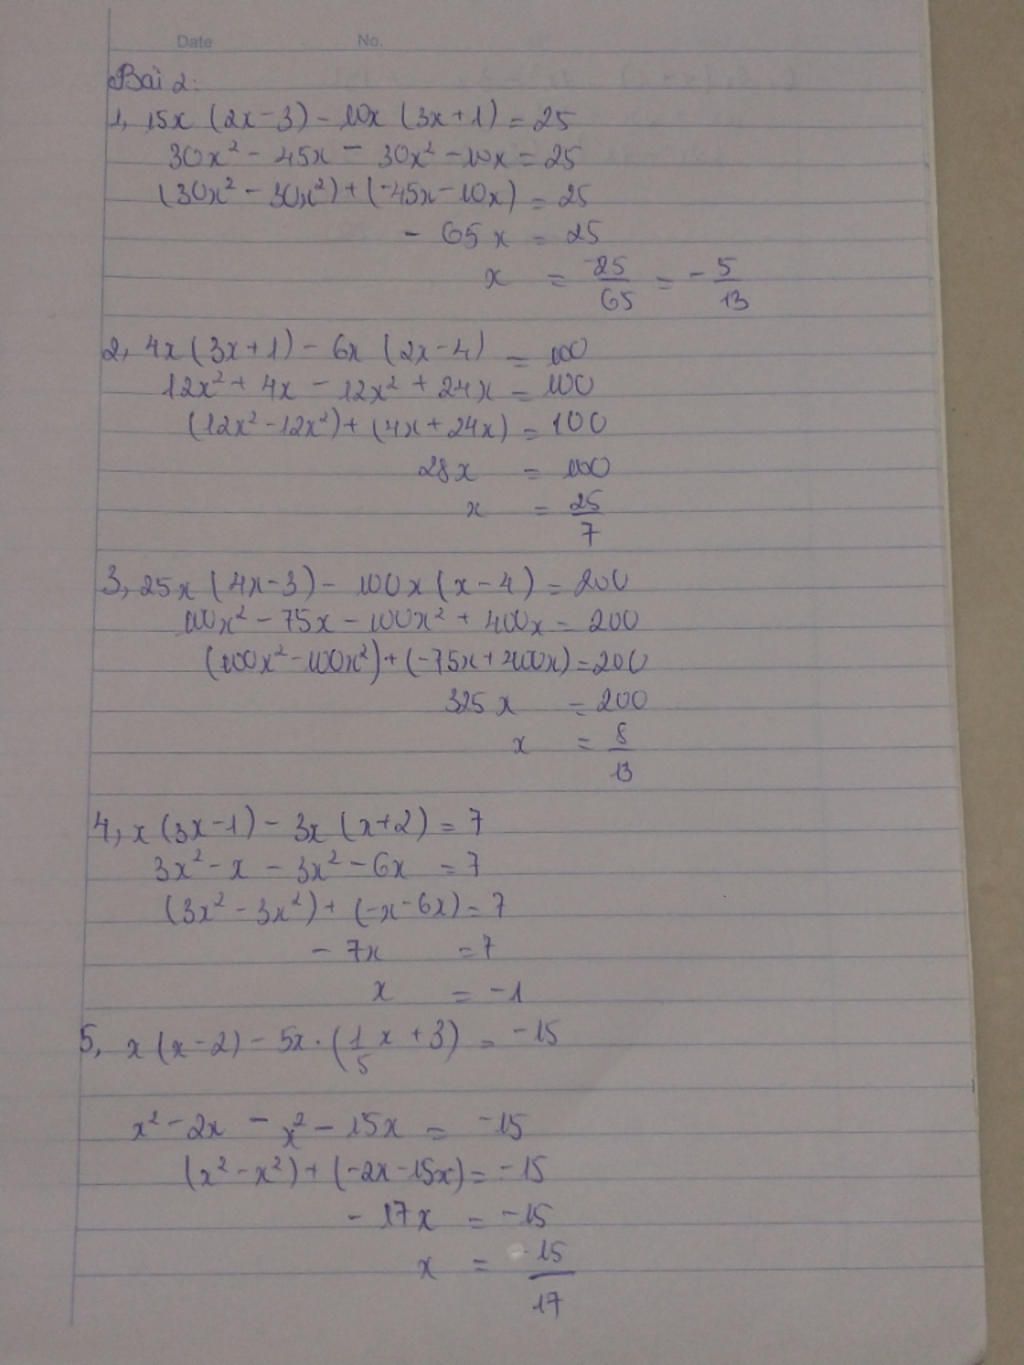 Date No.
Bài 2:
1, 15x (2x-3) - 10x (3x+1) = 25
30x² - 45x - 30x² - 10x = 25
(30x² - 30x²) + (-45x - 10x) = 25
- 65x = 25
x = -25/65 = -5/13
2, 4x (3x+1) - 6x (2x-4) = 100
12x² + 4x - 12x² + 24x = 100
(12x² - 12x²) + (4x + 24x) = 100
28x = 100
x = 25/7
3, 25x (4x-3) - 100x (x-4) = 200
100x² - 75x - 100x² + 400x = 200
(100x² - 100x²) + (-75x + 400x) = 200
325x = 200
x = 8/13
4, x (3x-1) - 3x (x+2) = 7
3x² - x - 3x² - 6x = 7
(3x² - 3x²) + (-x - 6x) = 7
- 7x = 7
x = -1
5, x (x-2) - 5x . (1/5 x + 3) = -15
x² - 2x - x² - 15x = -15
(x² - x²) + (-2x - 15x) = -15
- 17x = -15
x = 15/17